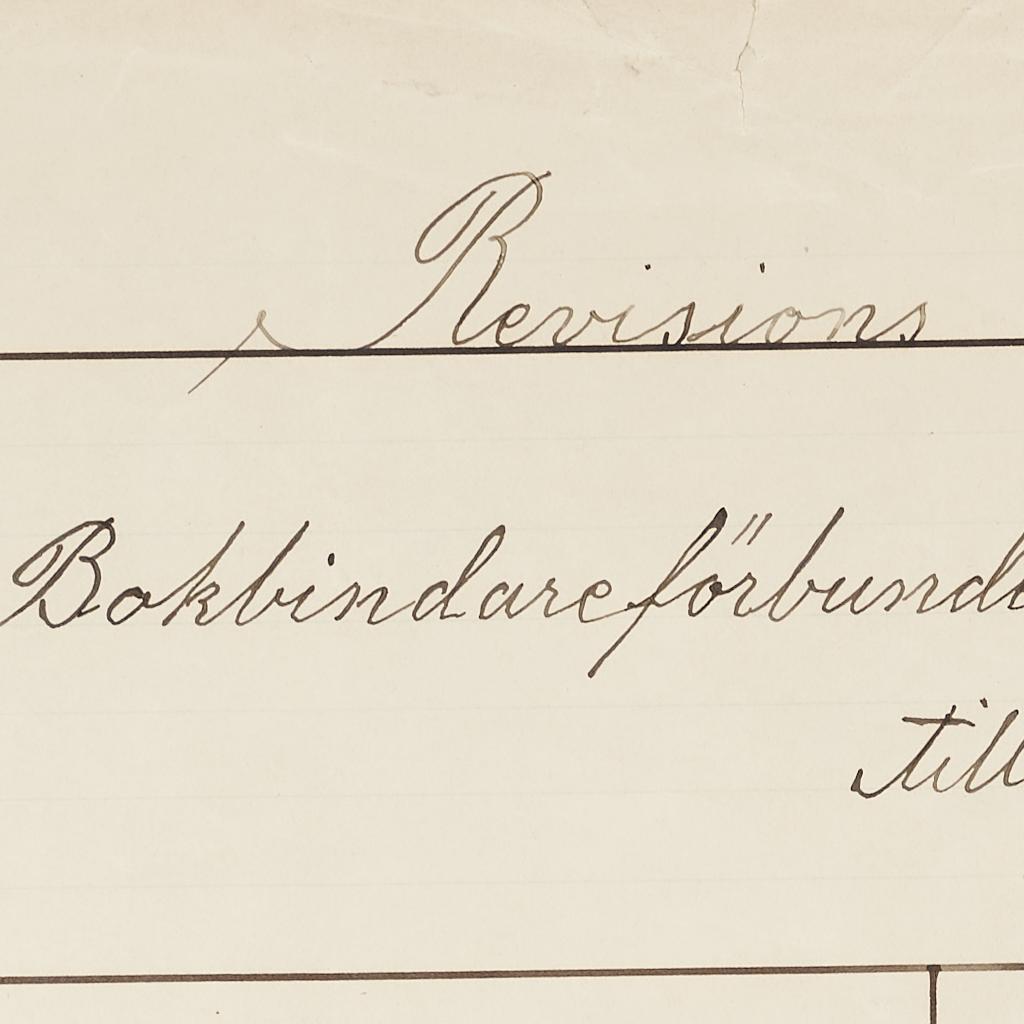 Revisions
Bokbindareförbunde
till